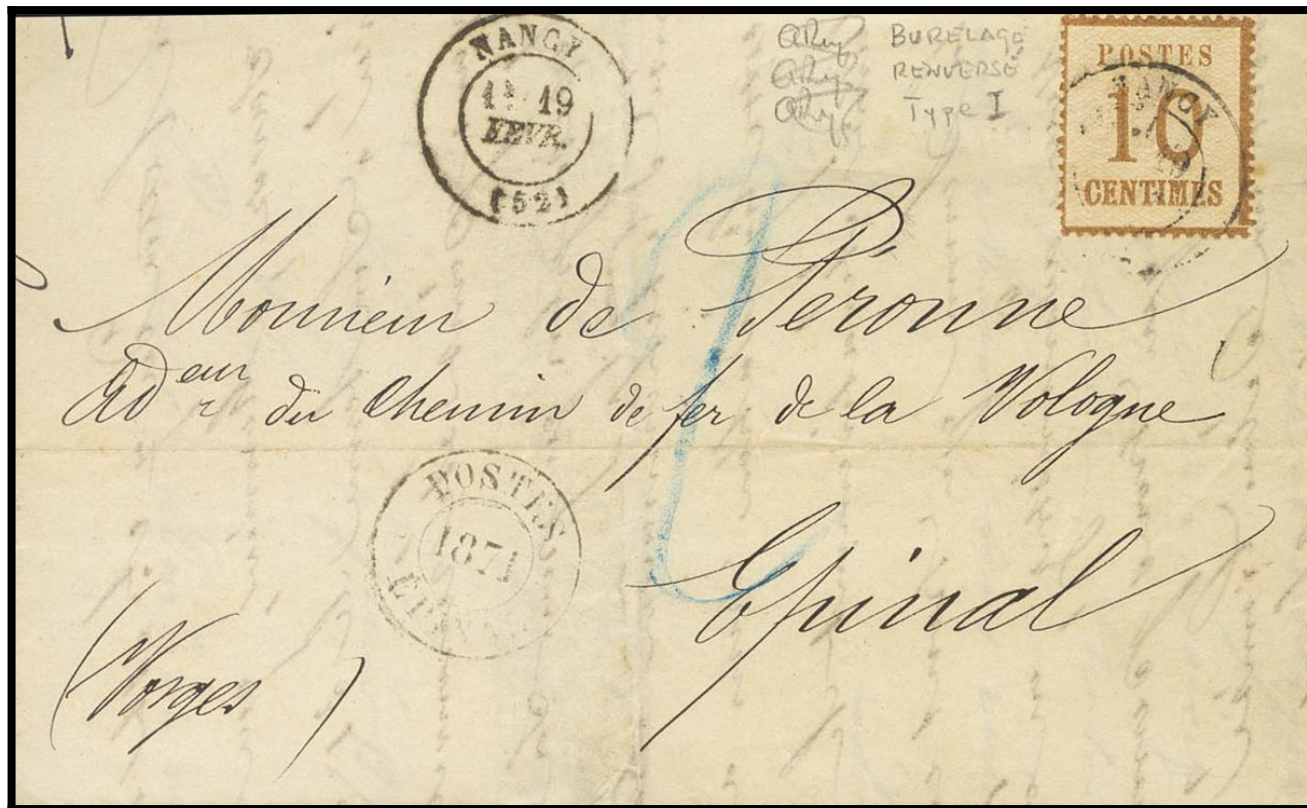 NANCY
19
FEVR.
(52)
BURELAGE
RENVERSE
Type I
POSTES
10
CENTIMES
NANCY
Monsieur de Péronne
Ad eur du Chemin de fer de la Vologne
POSTES
1871
EPINAL
Epinal
(Vosges)